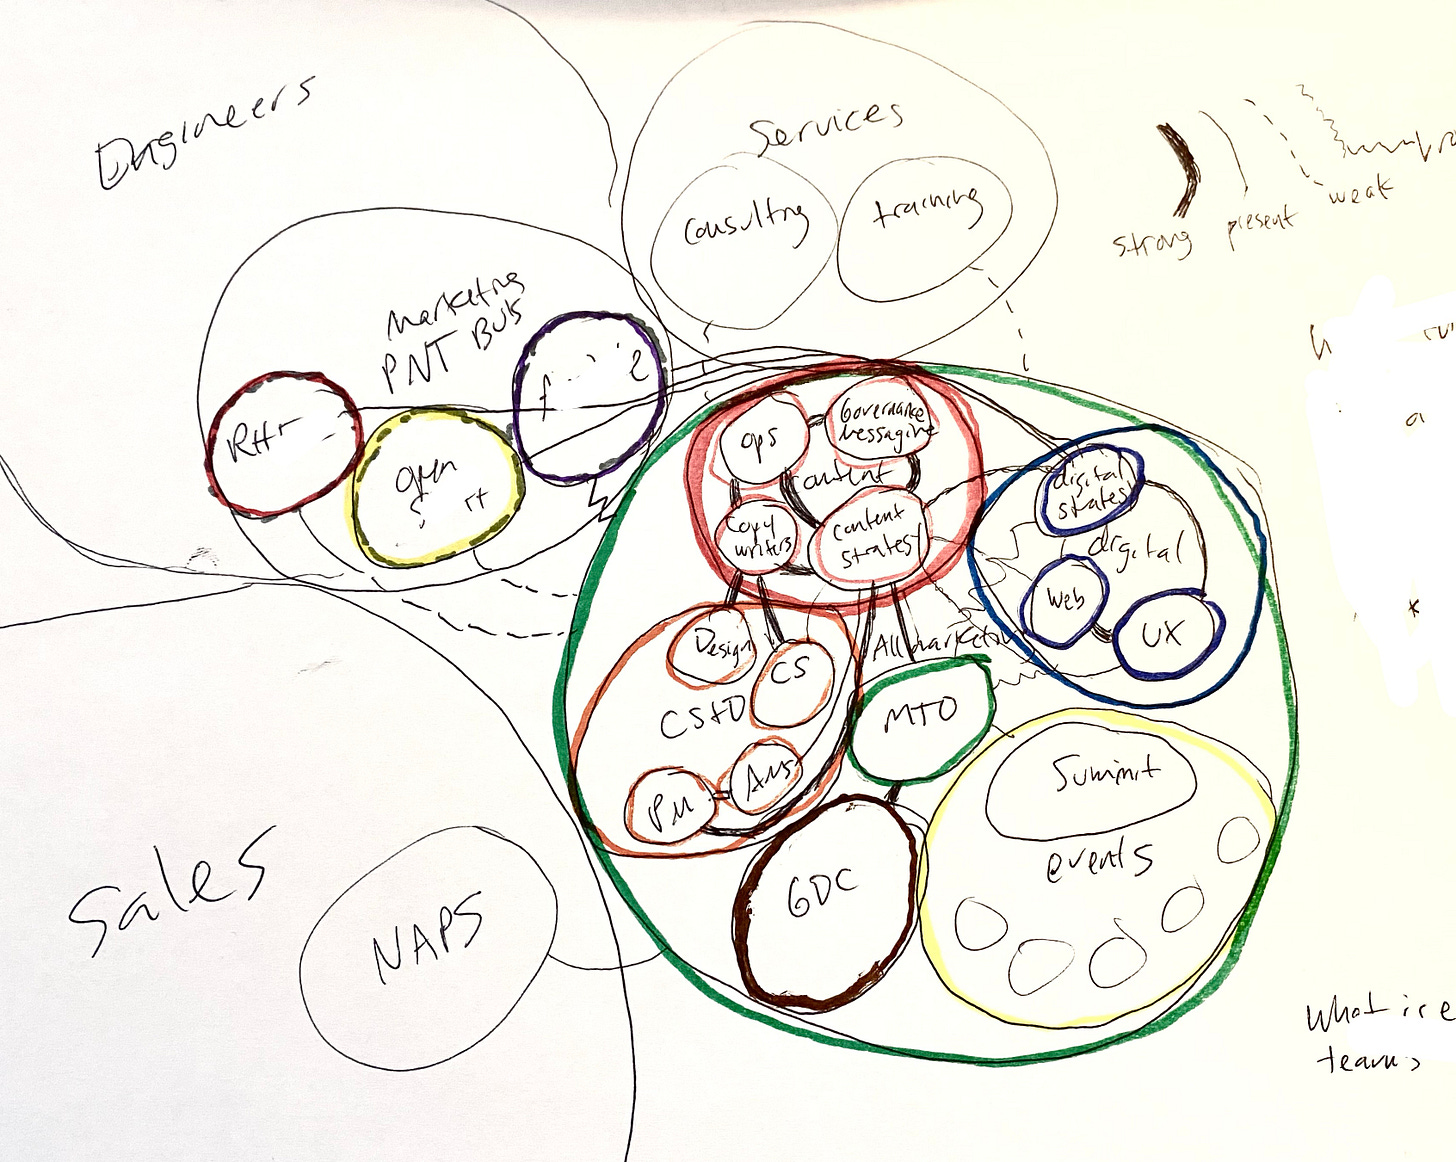 Engineers
Services
Consulting
training
strong
present
weak
Marketing
PNT BUs
ops
Governance
Messaging
content
copy
writers
content
strategy
digital
strategy
digital
Web
UX
Design
CS
CS+D
PM
All marketing
MTO
Summit
events
GDC
Sales
NAPS
*
What is
teams